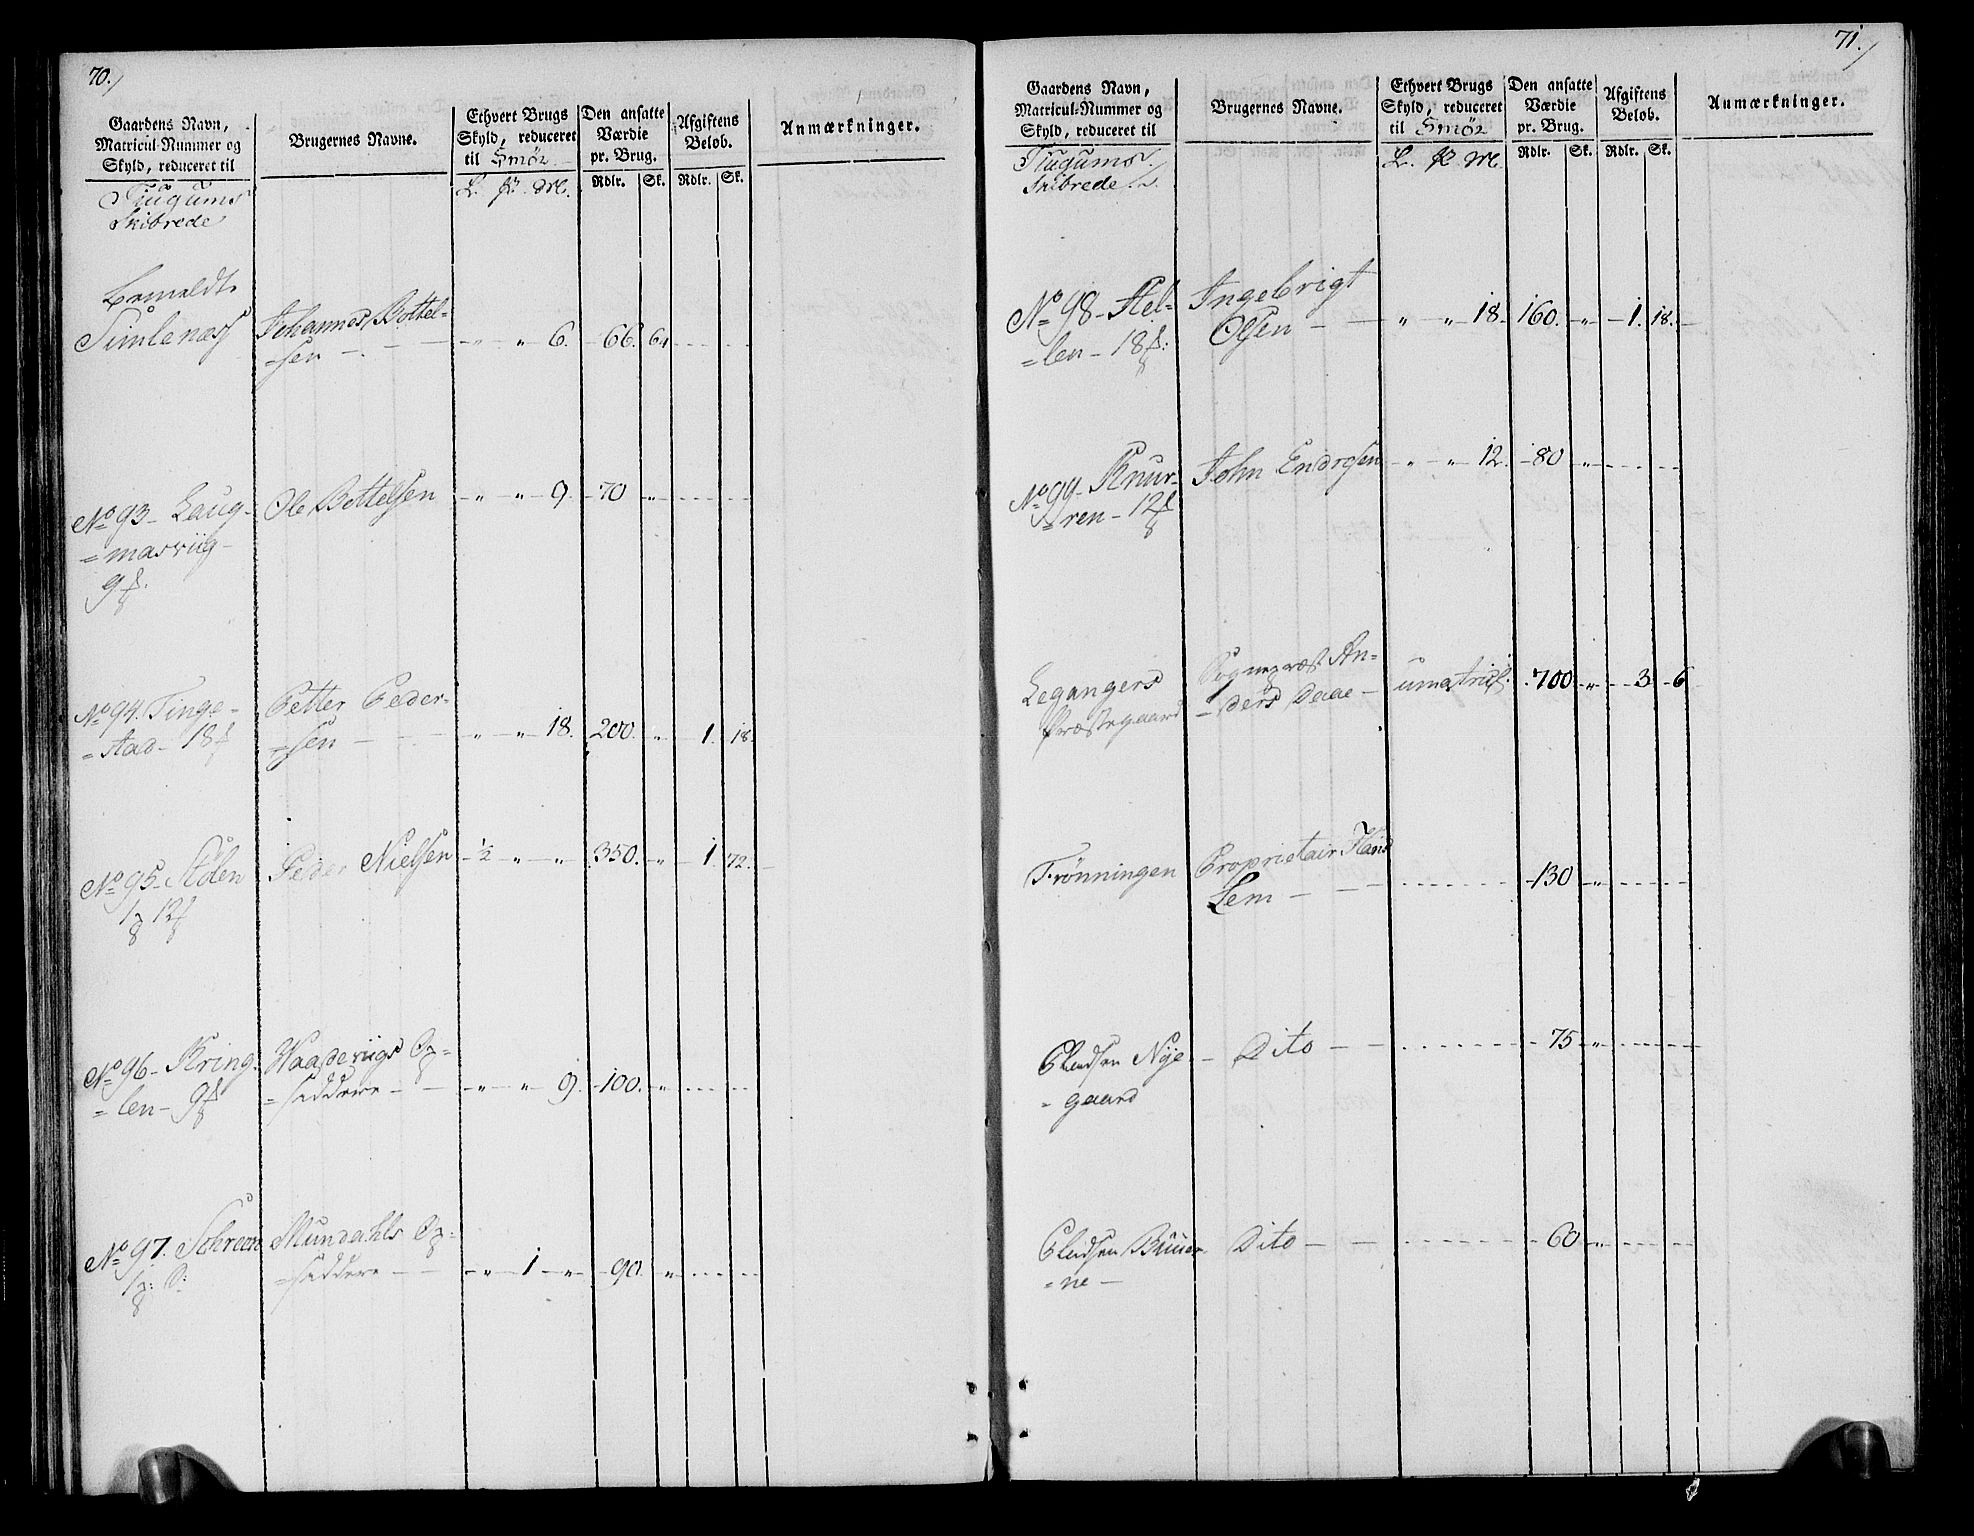 70.
Gaardens Navn,
Matricul-Nummer og
Skyld, reduceret til
Brugernes Navne.
Ethvert Brugs
Skyld, reduceret
til Smör
Den ansatte
Værdie
pr. Brug.
Afgiftens
Beløb.
Anmærkninger.
Rdlr. Sk. Rdlr. Sk.
Tiugums
Skibrede
Bemeldte
Simlenæs Johannes Bottel-
=sen - „ „ 6. 66. 64
No 93 - Laug- Ole Bottelsen „ „ 9. 70 „
=masviig -
9
No 94. Tinge- Petter Peder-
=stad - 18 =sen - „ „ 18. 200. „ 1. 18.
No 95 - Stölen Peder Nielsen ½ „ „ 350. „ 1. 72.
12
No 96 - Kring- Waadeviigs Op-
=len - 9 =siddere - „ „ 9. 100. „
No 97. Mundahls Op-
=siddere - „ 1 „ 90. „
71.
Gaardens Navn,
Matricul-Nummer og
Skyld, reduceret til
Brugernes Navne.
Ethvert Brugs
Skyld, reduceret
til Smör
Den ansatte
Værdie
pr. Brug.
Afgiftens
Beløb.
Anmærkninger.
Rdlr. Sk. Rdlr. Sk.
Tiugums
Skibrede
No 98 - Hel- Ingebrigt
=len - 18 Olsen - „ „ 18. 160. „ 1. 18.
No 99 - Knur- John Endresen „ „ 12. 80 „
=ren - 12
Legangers Sognepræst An-
Præstegaard =ders Daae - umatricul. 700 „ 3 6
Frønningen Proprietair Hans
Lem - 130 „
Nye- Dito - 75 „
=gaard
Dito - 60 „
=ne -